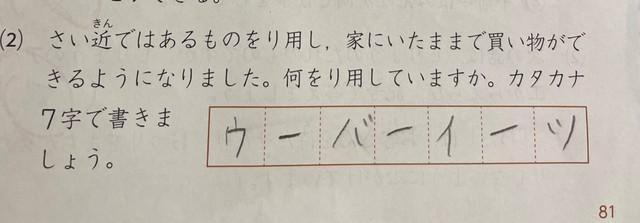 (2) さい近ではあるものをり用し，家にいたままで買い物がで
きるようになりました。何をり用していますか。カタカナ
7字で書きま
しょう。
ウーバーイーツ
81